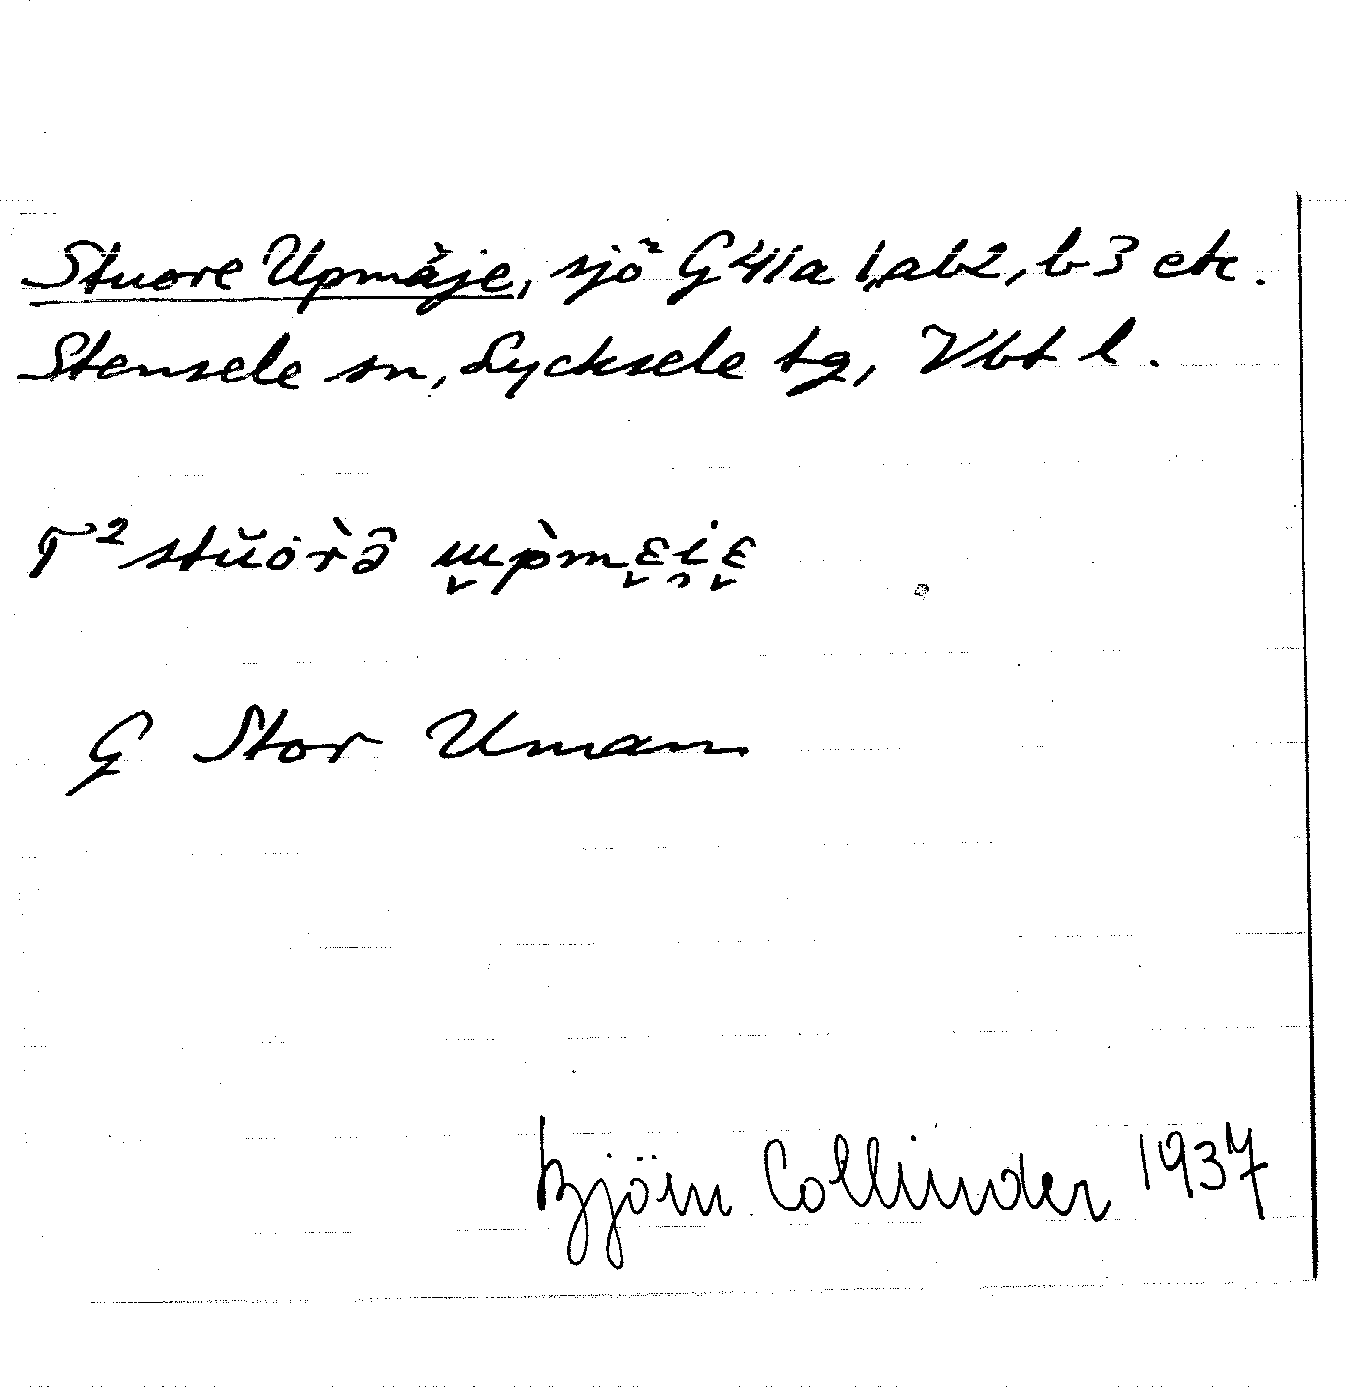 Stuore Upmäje, sjö G 41a 1, ab2, b3 etc.
Stensele sn, Lycksele tg, Vbt l.
T² stŭȯr̀ə̑ ɯ̬p̀mɛ̬i̯ɛ̬
G Stor Uman
Björn Collinder 1937